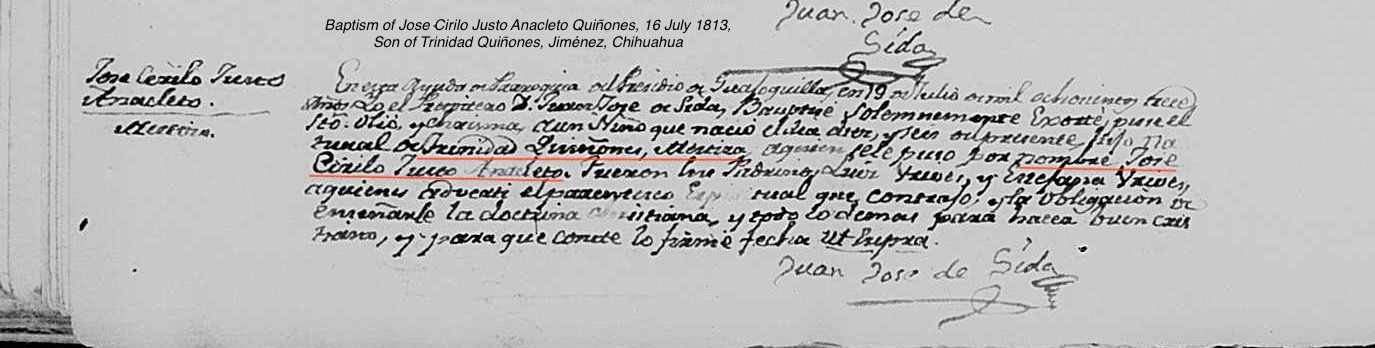 Baptism of Jose Cirilo Justo Anacleto Quiñones, 16 July 1813,
Son of Trinidad Quiñones, Jiménez, Chihuahua
Juan Jose de
Sida
Jose Cirilo Justo
Anacleto.
Mestizo.
En esta Ayuda de Parroquia del Presidio de Guajoquilla, en 19 de Julio de mil ochocientos trece
años Yo el Presvitero D. Juan Jose de Sida, Bauptisé Solemnemente Exorté, puse el
Sto. Olio, y chrisma, a un Niño que nació el dia diez, y seis del presente, hijo Na
tural de Trinidad Quiñones, Mestiza, a quien se le puso por nombre Jose
Cirilo Justo Anacleto. Fueron los Padrinos, Luis y
a quienes el parentesco Espiritual que contrajo; y la obligacion de
enseñarle la doctrina christiana, y todo lo demas para hacer buen cris
tiano, y para que conste lo firmé fecha Ut Supra.
Juan Jose de Sida